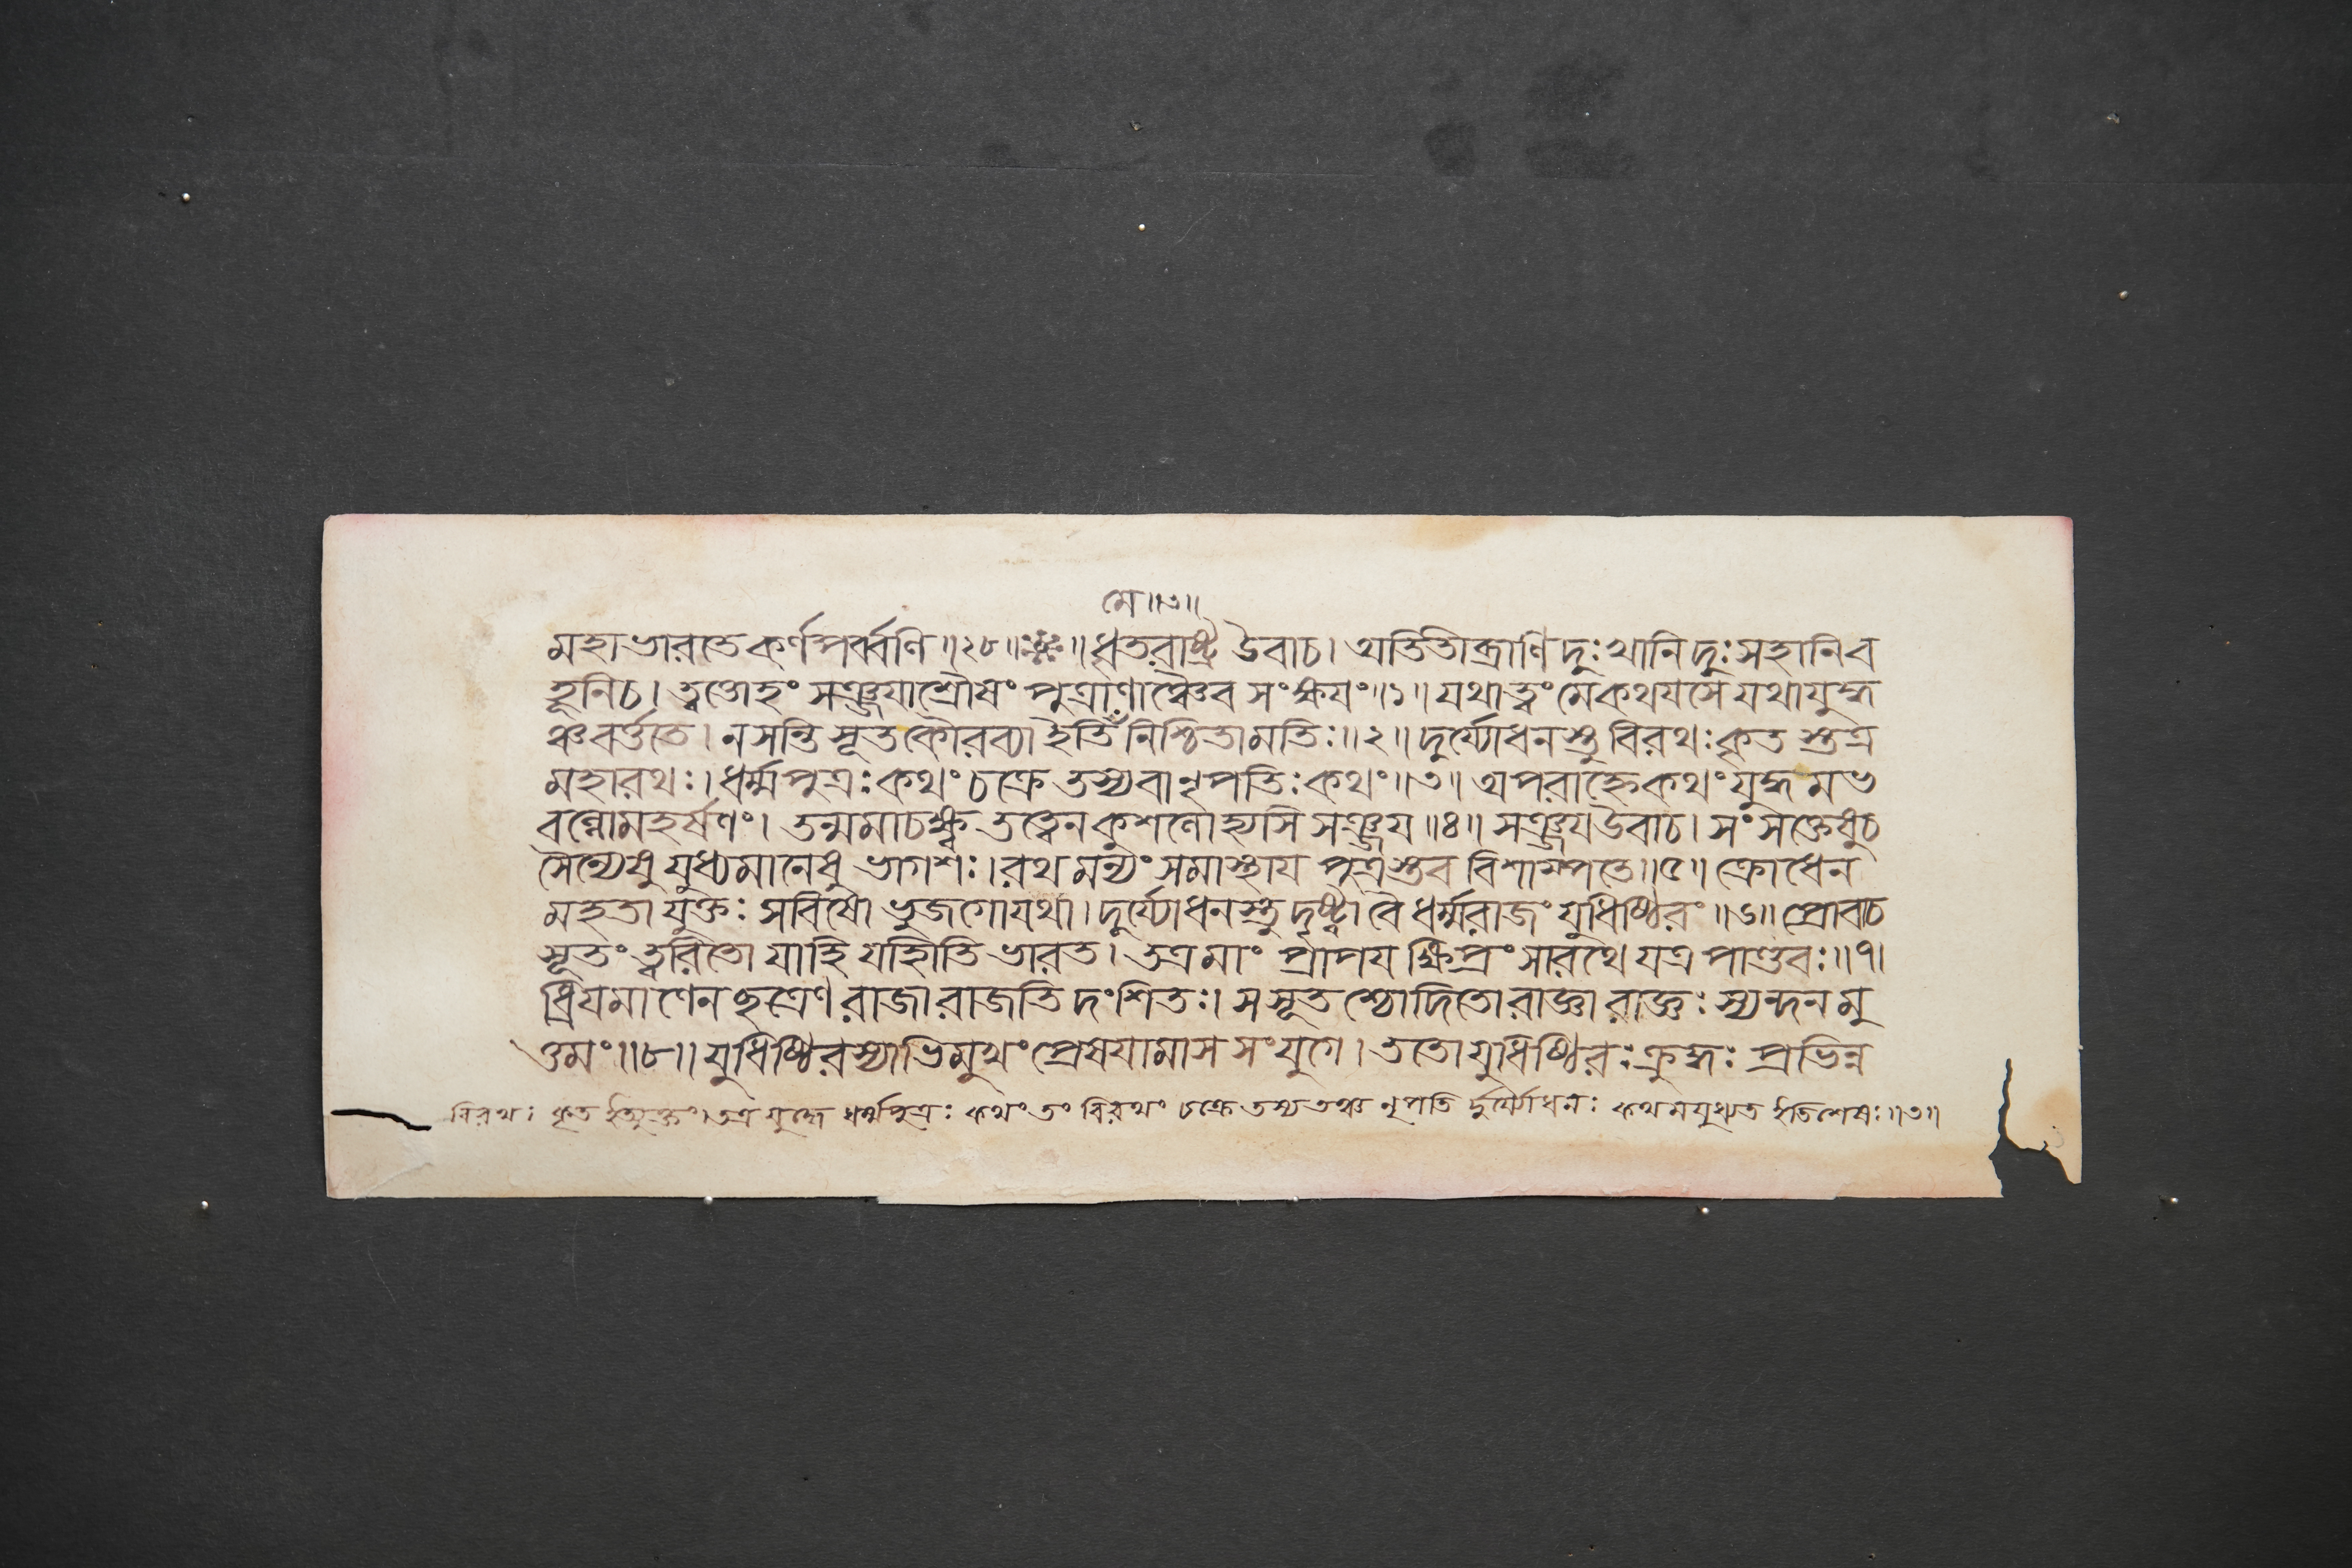 মে॥৩॥
মহাভারতে কর্ণপর্ব্বণি॥২৮॥❈॥ধৃতরাষ্ট্র উবাচ। অতিতীব্রাণি দুঃখানি দুঃসহানি ব
হূনি চ। ত্বত্তোহং সঞ্জয়াশ্রৌষং পুত্রাণাঞ্চৈব সংক্ষয়ং॥১॥ যথা ত্বং মে কথয়সে যথা যুদ্ধ
ঞ্চ বর্ত্ততে। ন সন্তি সূত কৌরব্যা ইতি নিশ্চিতা মতিঃ॥২॥ দুর্য্যোধনস্তু বিরথঃ কৃতস্তত্র
মহারথঃ। ধর্ম্মপুত্রঃ কথং চক্রে তস্য বা নৃপতিঃ কথং॥৩॥ অপরাহ্নে কথং যুদ্ধমভ
বল্লোমহর্ষণং। তন্মমাচক্ষ্ব তত্ত্বেন কুশলো হ্যসি সঞ্জয়॥৪॥ সঞ্জয় উবাচ। সংসক্তেষু চ
সৈন্যেষু যুধ্যমানেষু ভাগশঃ। রথমন্যং সমাস্থায় পুত্রস্তব বিশাম্পতে॥৫॥ ক্রোধেন
মহতা যুক্তঃ সবিষো ভুজগো যথা। দুর্য্যোধনস্তু দৃষ্ট্বা বৈ ধর্ম্মরাজং যুধিষ্ঠিরং॥৬॥ প্রোবাচ
সূতং ত্বরিতো যাহি যাহীতি ভারত। তত্র মাং প্রাপয় ক্ষিপ্রং সারথে যত্র পাণ্ডবঃ॥৭।
ধ্রিয়মাণেন ছত্রেণ রাজা রাজতি দংশিতঃ। স সূতশ্চোদিতো রাজ্ঞা রাজ্ঞঃ স্যন্দনমু
ত্তমং॥৮॥ যুধিষ্ঠিরস্যাভিমুখং প্রেষয়ামাস সংযুগে। ততো যুধিষ্ঠিরঃ ক্রুদ্ধঃ প্রভিন্ন
বিরথঃ কৃত ইত্যুক্তং। তত্র যুদ্ধে ধর্ম্মপুত্রঃ কথং তং বিরথং চক্রে তস্য তঞ্চ নৃপতি র্দুর্য্যোধনঃ কথমযুধ্যত ইতি শেষঃ॥৩॥